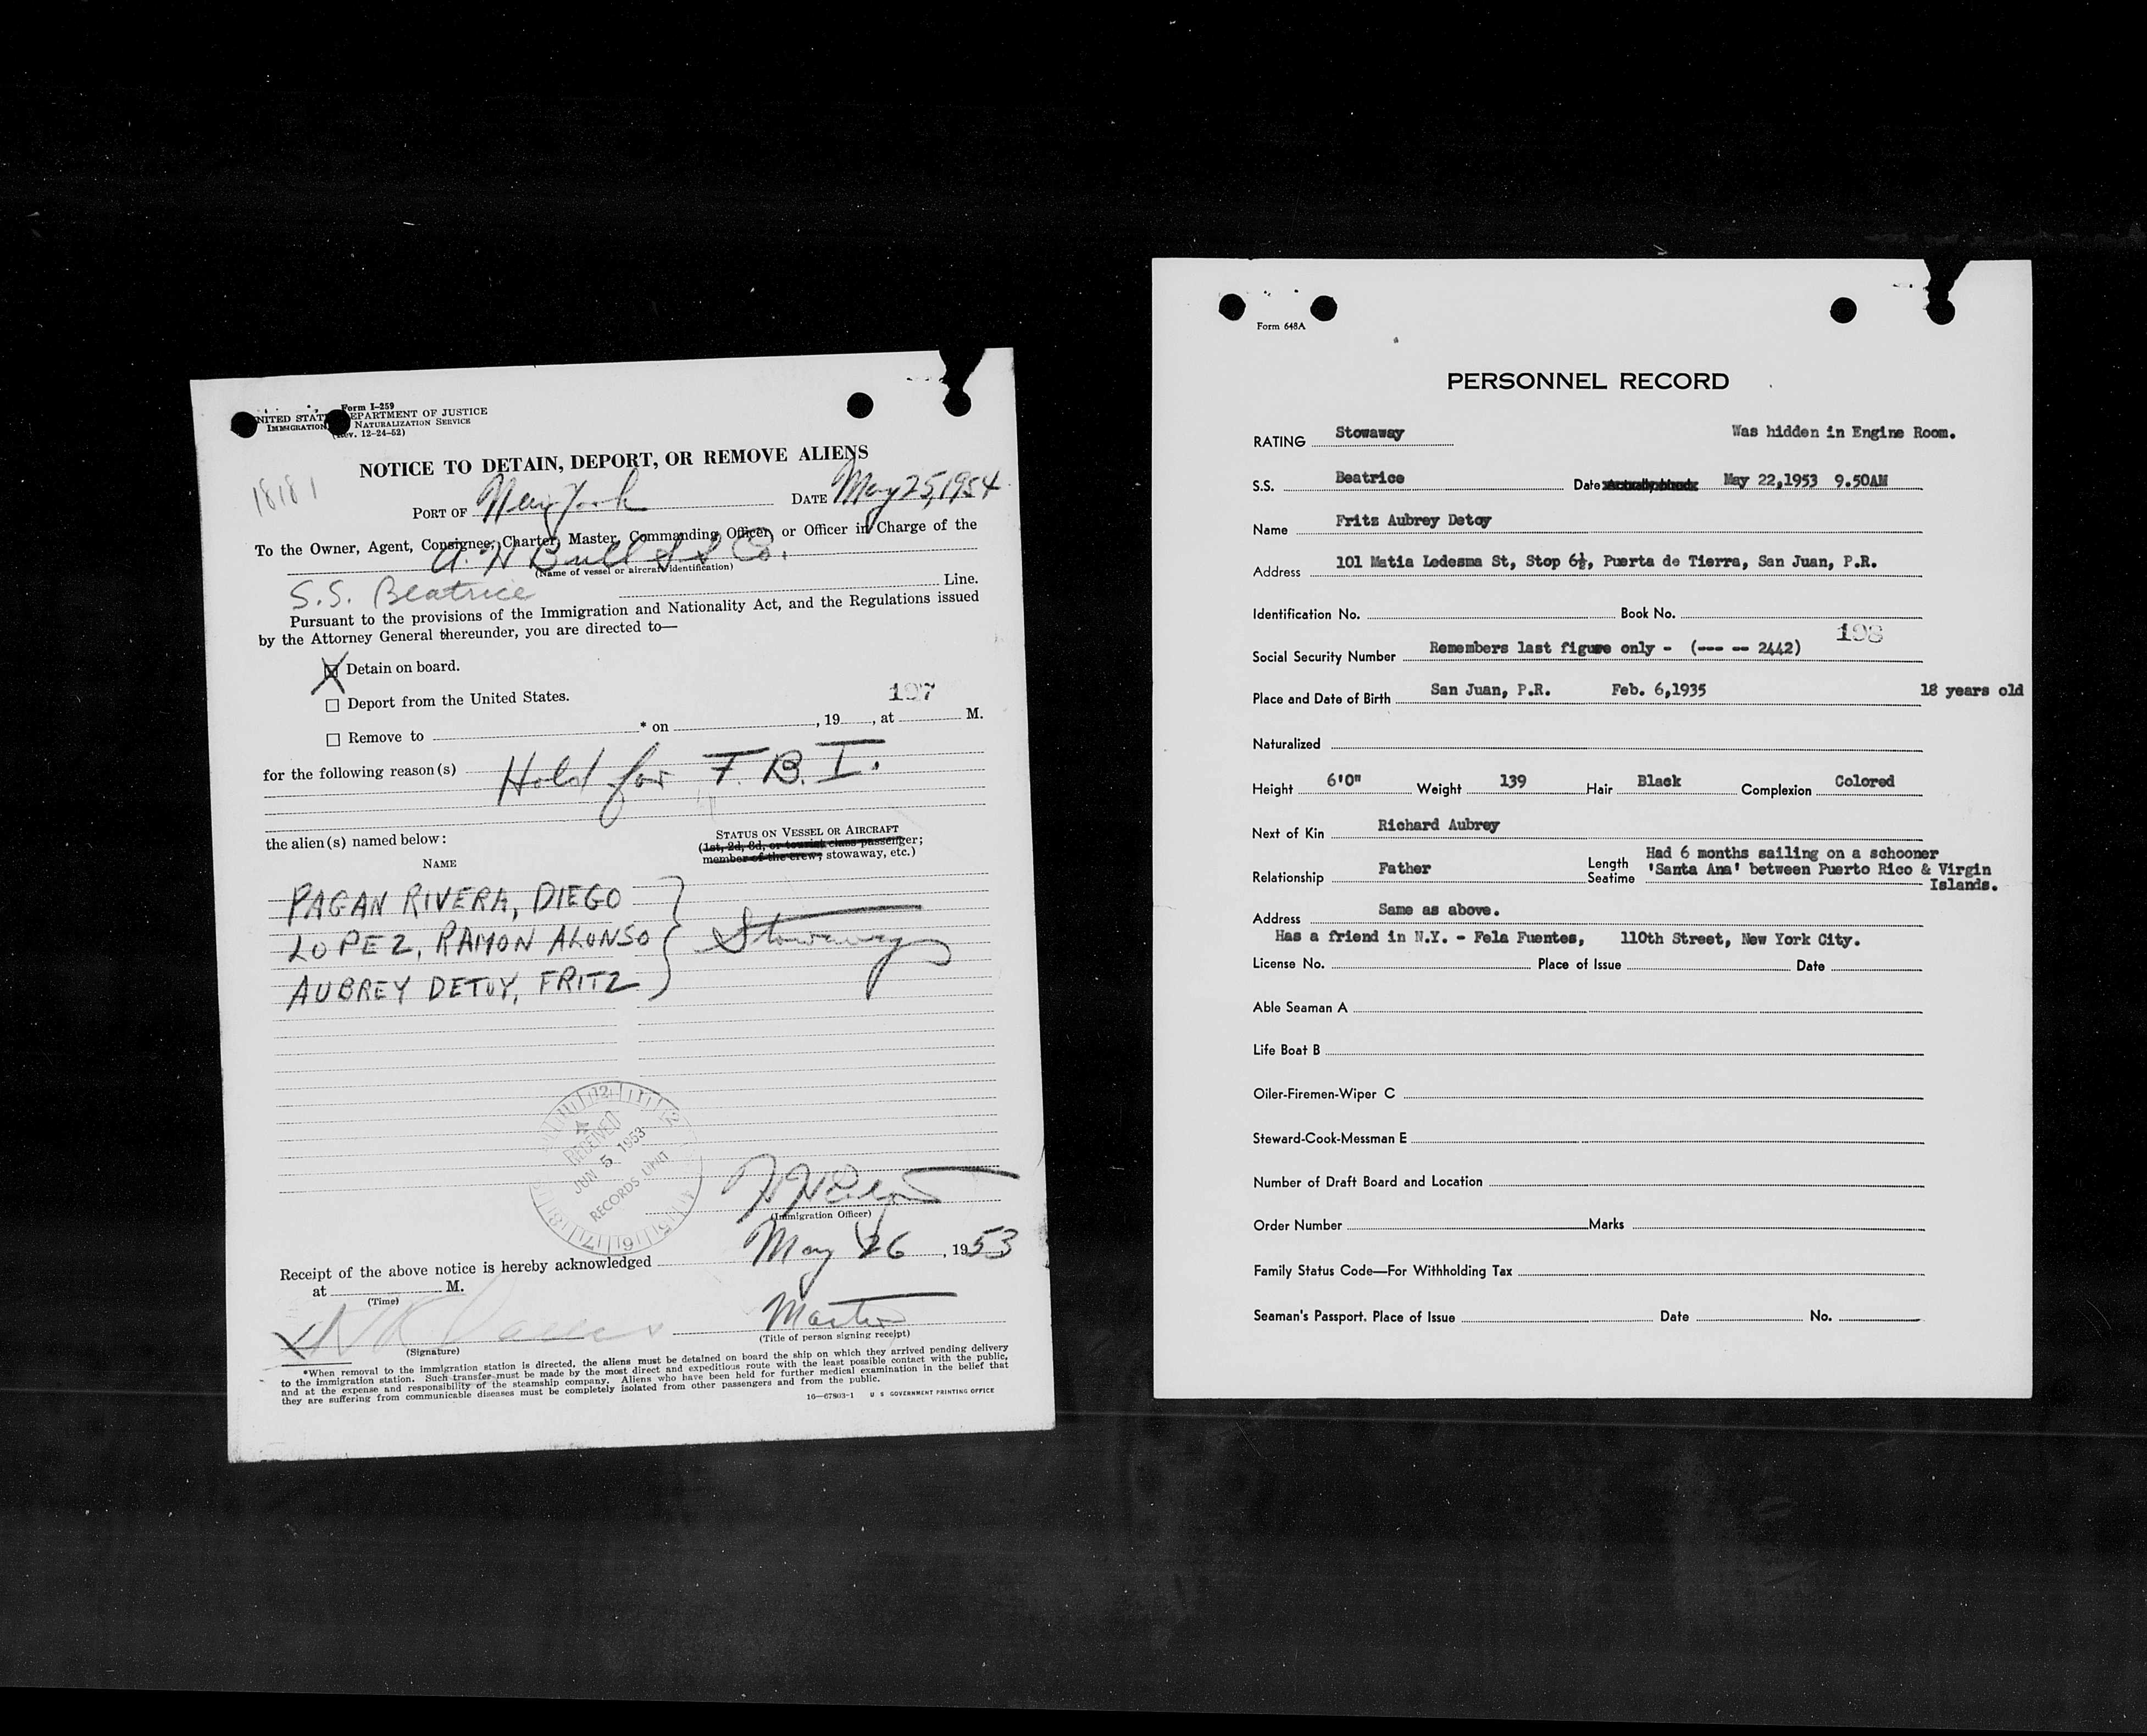 Form I-259
UNITED STATES DEPARTMENT OF JUSTICE
IMMIGRATION NATURALIZATION SERVICE
(Rev. 12-24-52)
NOTICE TO DETAIN, DEPORT, OR REMOVE ALIENS
18181
PORT OF New York DATE May 25, 1954
To the Owner, Agent, Consignee, Charter, Master, Commanding Officer, or Officer in Charge of the
A. H Bull S S Co.
(Name of vessel or aircraft identification)
S.S. Beatrice Line.
Pursuant to the provisions of the Immigration and Nationality Act, and the Regulations issued
by the Attorney General thereunder, you are directed to—
X Detain on board.
☐ Deport from the United States.
197
☐ Remove to * on , 19 , at M.
for the following reason(s) Hold for F.B.I.
the alien(s) named below:
STATUS ON VESSEL OR AIRCRAFT
(1st, 2d, 3d, or tourist class passenger;
member of the crew; stowaway, etc.)
NAME
PAGAN RIVERA, DIEGO
LOPEZ, RAMON ALONSO Stowaways
AUBREY DETOY, FRITZ
RECEIVED
JUN 5 1953
RECORDS UNIT
(Immigration Officer)
Receipt of the above notice is hereby acknowledged May 26, 1953
at M.
(Time)
Master
(Signature) (Title of person signing receipt)
*When removal to the immigration station is directed, the aliens must be detained on board the ship on which they arrived pending delivery
to the immigration station. Such transfer must be made by the most direct and expeditious route with the least possible contact with the public,
and at the expense and responsibility of the steamship company. Aliens who have been held for further medical examination in the belief that
they are suffering from communicable diseases must be completely isolated from other passengers and from the public.
16—67803-1 U S GOVERNMENT PRINTING OFFICE
Form 648A
PERSONNEL RECORD
RATING Stowaway Was hidden in Engine Room.
S.S. Beatrice Date May 22,1953 9.50AM
Name Fritz Aubrey Detoy
Address 101 Matia Ledesma St, Stop 6½, Puerta de Tierra, San Juan, P.R.
Identification No. Book No.
198
Social Security Number Remembers last figure only - (--- -- 2442)
Place and Date of Birth San Juan, P.R. Feb. 6,1935 18 years old
Naturalized
Height 6'0" Weight 139 Hair Black Complexion Colored
Next of Kin Richard Aubrey
Relationship Father Length Seatime Had 6 months sailing on a schooner
'Santa Ana' between Puerto Rico & Virgin
Islands.
Address Same as above.
Has a friend in N.Y. - Fela Fuentes, 110th Street, New York City.
License No. Place of Issue Date
Able Seaman A
Life Boat B
Oiler-Firemen-Wiper C
Steward-Cook-Messman E
Number of Draft Board and Location
Order Number Marks
Family Status Code—For Withholding Tax
Seaman's Passport. Place of Issue Date No.